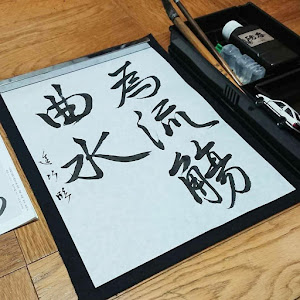 為流觴
曲水